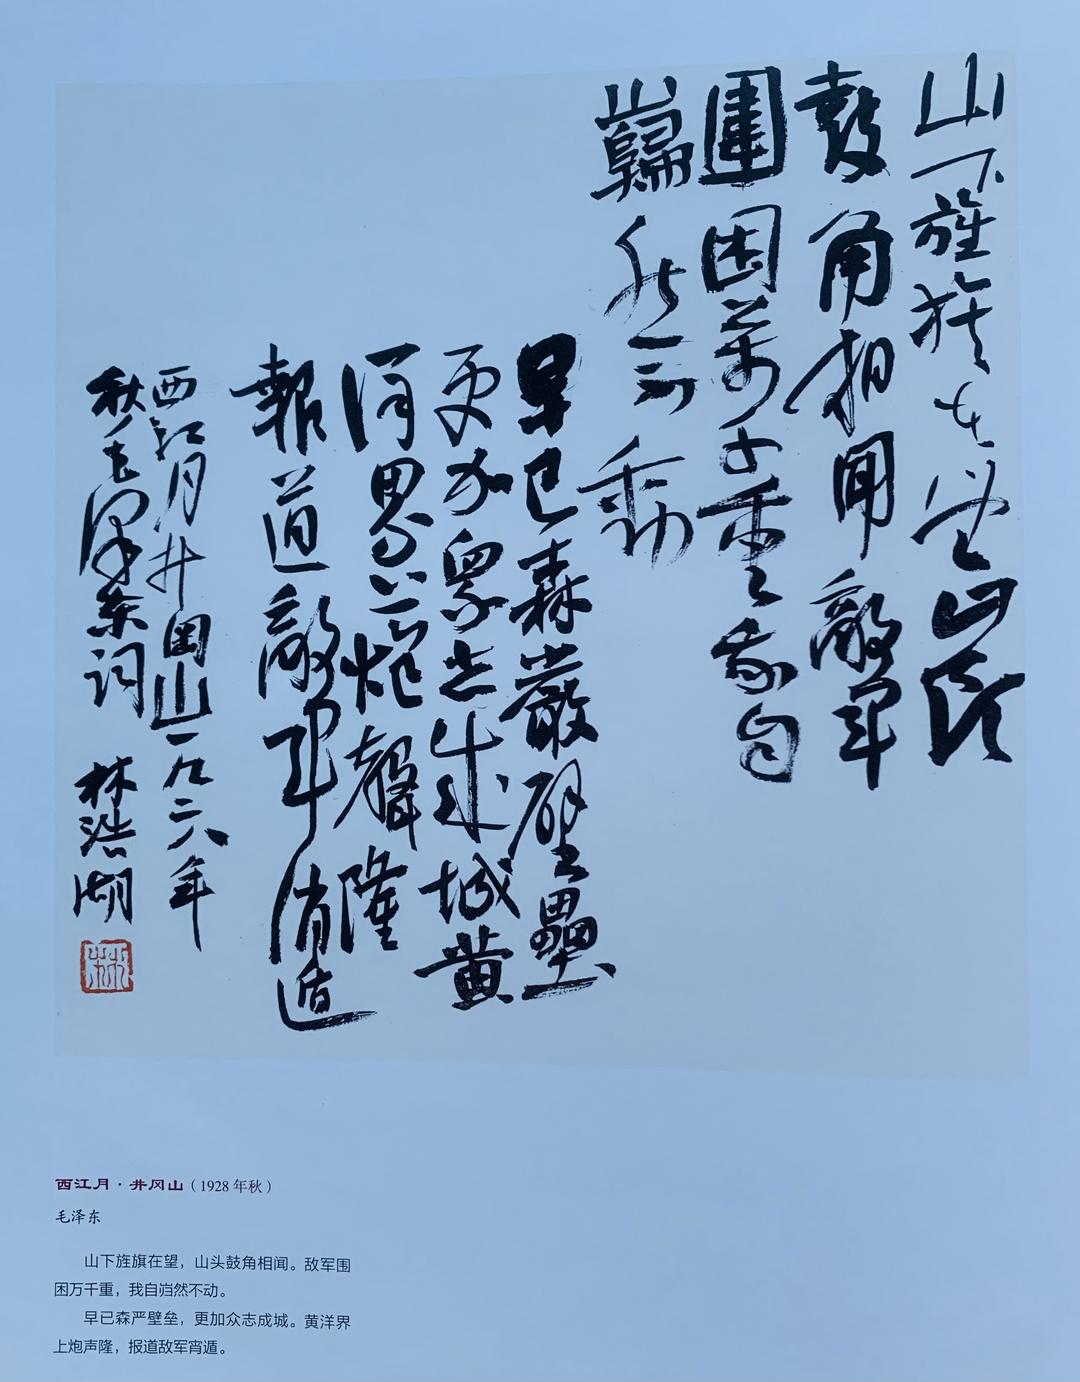 山下旌旗在望山頭
鼓角相聞敵軍
圍困萬千重我自
巋然不動
早已森嚴壁壘
更加眾志成城黃
洋界上炮聲隆
報道敵軍宵遁
西江月井岡山一九二八年
秋毛澤東詞 林浩湖
西江月·井冈山（1928 年秋）
毛泽东
山下旌旗在望，山头鼓角相闻。敌军围
困万千重，我自岿然不动。
早已森严壁垒，更加众志成城。黄洋界
上炮声隆，报道敌军宵遁。